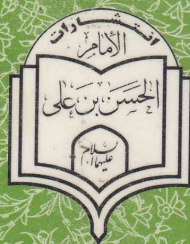 انتشارات
الإمام
الحسن بن علی
علیهما السلام